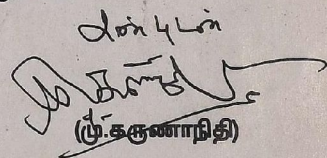 அன்புடன்
(மு.கருணாநிதி)